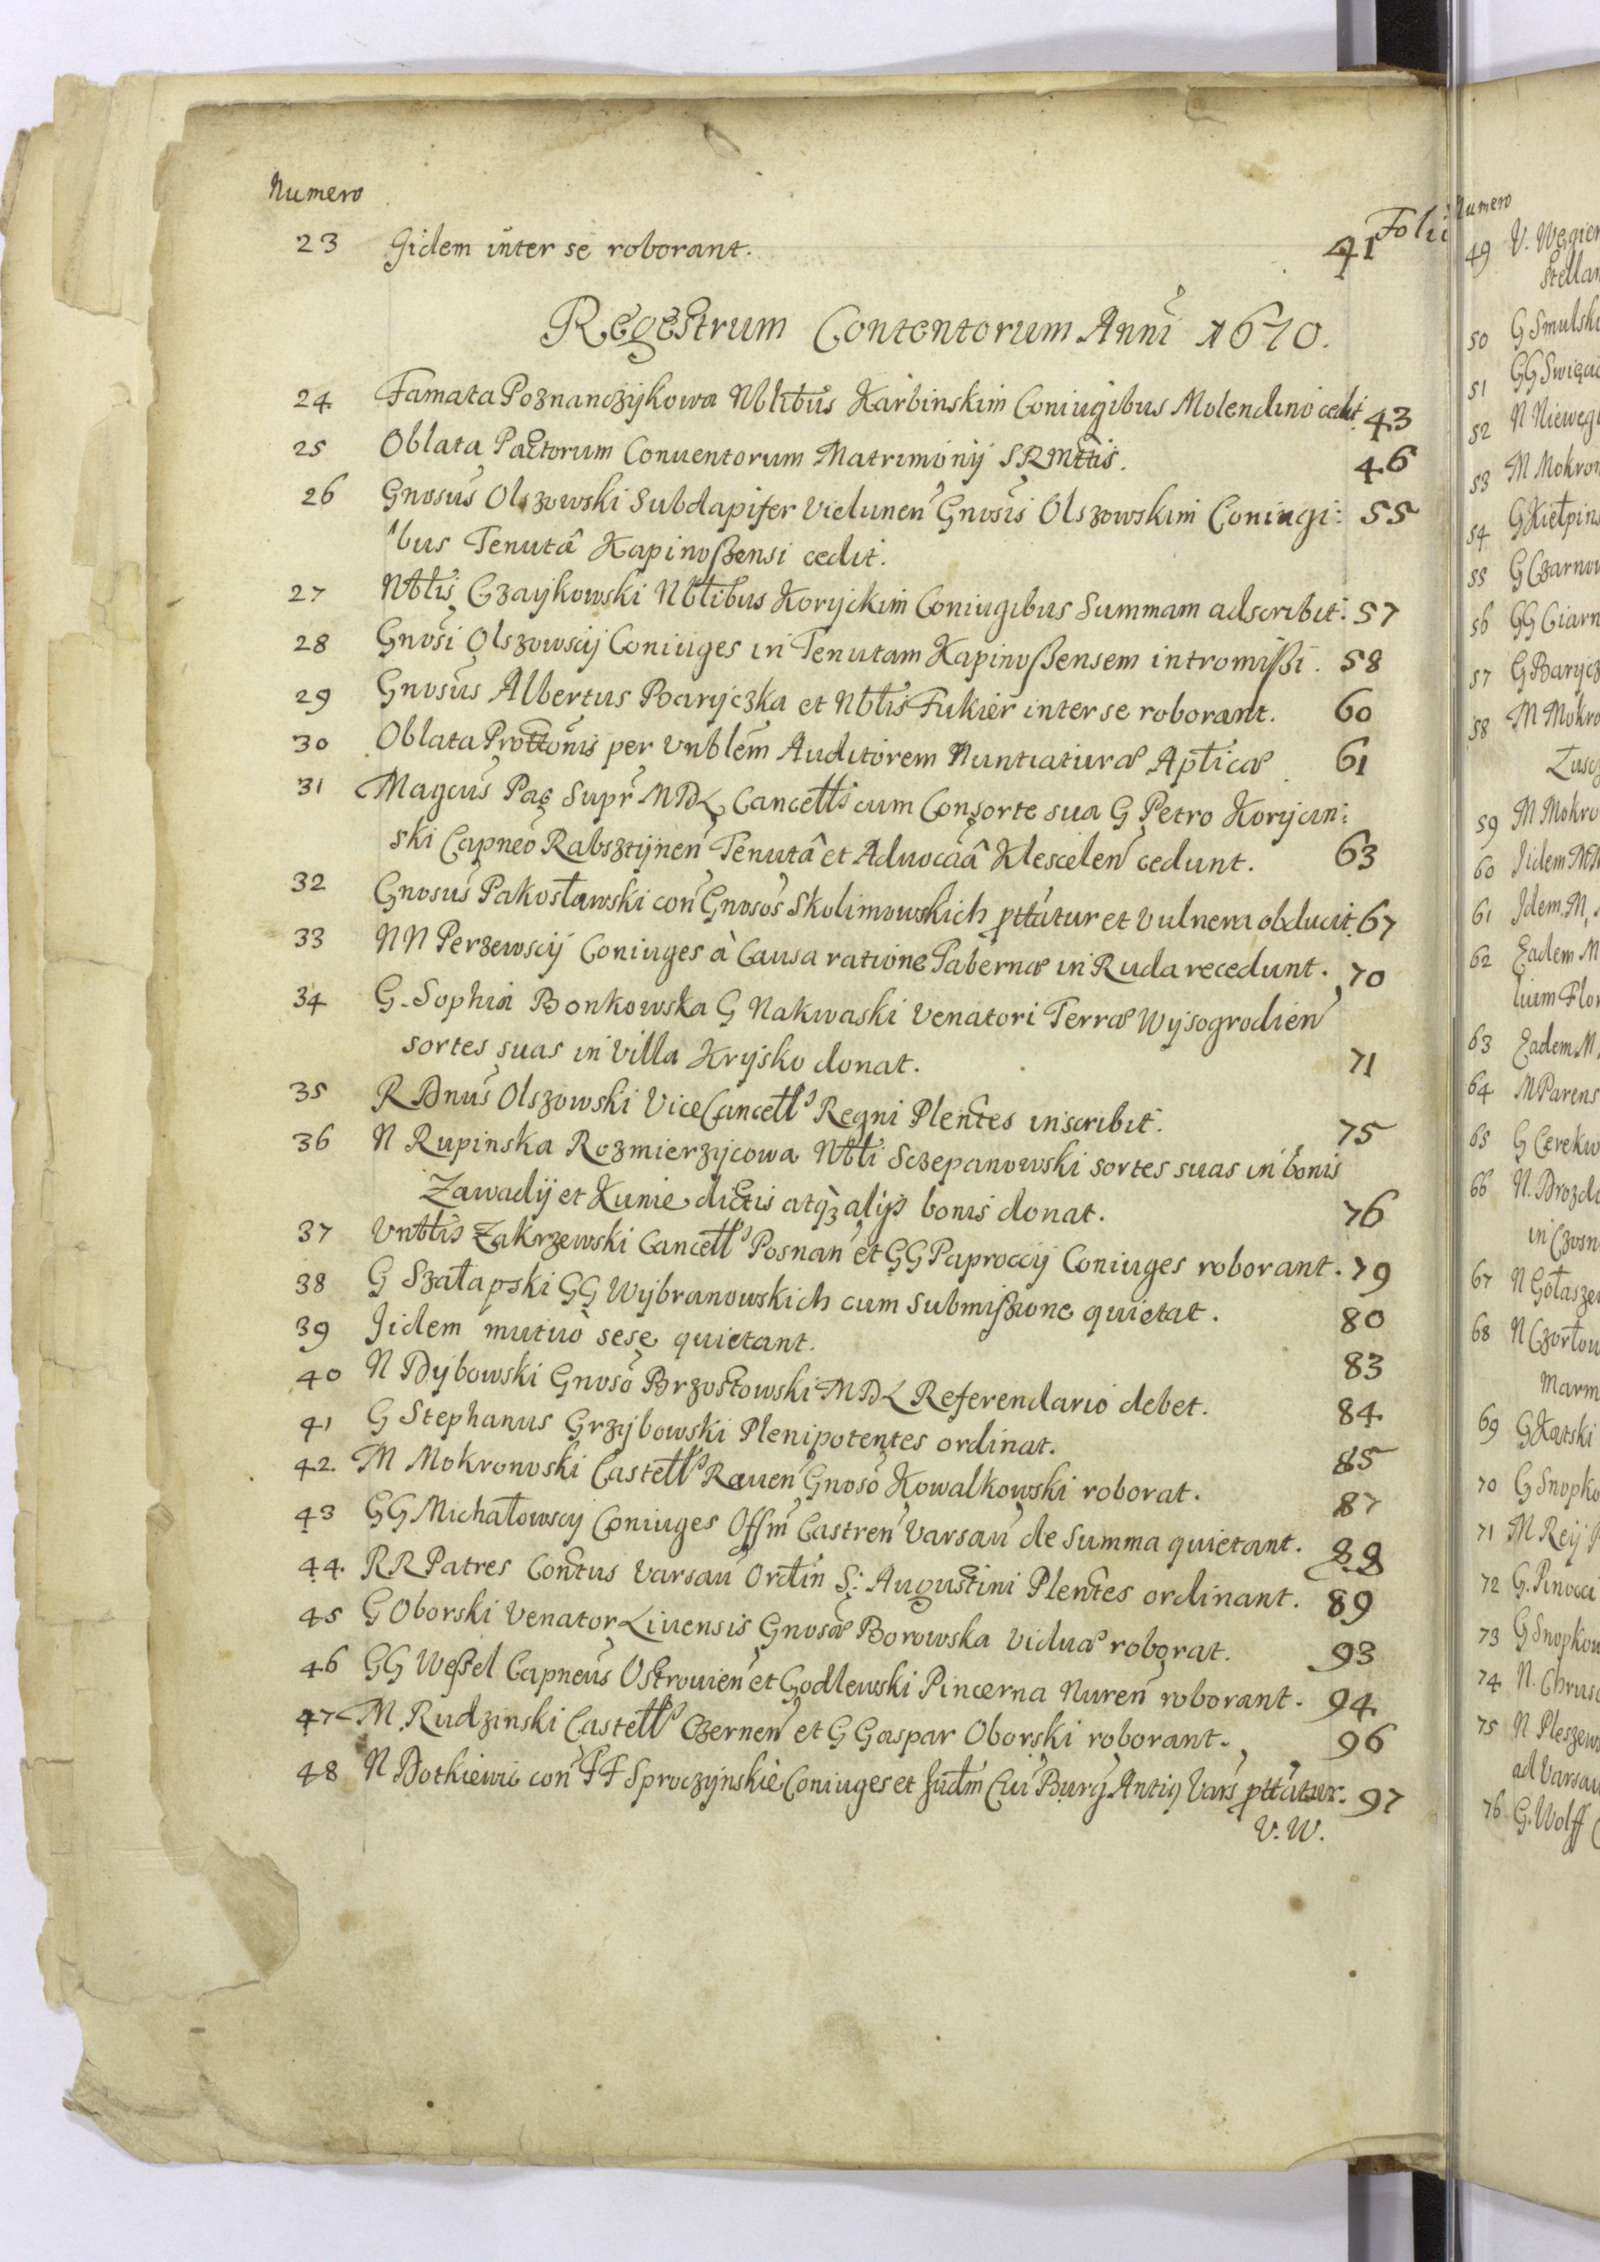 Numero Folio
23 Iidem inter se roborant. 41
Regestrum Contentorum Anni 1670.
24 Famata Poznanczykowa Nblibus Karbinskim Coniugibus Molendino cedit 43
25 Oblata Pactorum Conuentorum Matrimonij SRMttis. 46
26 Gnosus Olszowski Subdapifer Vielunen Gnosis Olszowskim Coniugi: 55
bus Tenutâ Kapinoßensi cedit.
27 Nblis Czaykowski Nblibus Koryckim Coniugibus Summam adscribit. 57
28 Gnosi Olszowscij Coniuges in Tenutam Kapinoßensem intromißi. 58
29 Gnosus Albertus Baryczka et Nblis Fukier inter se roborant. 60
30 Oblata Prottonis per Vnblem Auditorem Nuntiaturæ Aplicæ 61
31 Magcus Pac Supr MDL Cancells cum Consorte sua G Petro Korycin:
ski Capneo Rabsztynen Tenutâ et Aduocaâ Klescelen cedunt. 63
32 Gnosus Pakosławski con Gnosos Skolimowskich pttatur et Vulnera obducit. 67
33 NN Perzewscij Coniuges à Causa ratione Tabernæ in Ruda recedunt. 70
34 G. Sophia Bonkowska G Nakwaski Venatori Terræ Wysogrodien
sortes suas in Villa Krysko donat. 71
35 R Dnus Olszowski ViceCancells Regni Plentes inscribit. 75
36 N Rupinska Rozmierzycowa Nbli Sczepanowski sortes suas in bonis
Zawady et Kunie dictis atq3 alijs bonis donat. 76
37 Vnblis Zakrzewski Cancells Posnan et GG Paproccij Coniuges roborant. 79
38 G Szałapski GG Wybranowskich cum Submißione quietat. 80
39 Iidem mutuò sese quietant. 83
40 N Dybowski Gnoso Brzostowski MDL Referendario debet. 84
41 G Stephanus Grzybowski Plenipotentes ordinat. 85
42 M Mokronoski Castells Rauen Gnoso Kowalkowski roborat. 87
43 GG Michałowscij Coniuges Offm Castren Varsau de Summa quietant. 88
44 RR Patres Contus Varsau Ordin S: Augustini Plentes ordinant. 89
45 G Oborski Venator Liuensis Gnosæ Borowska Viduæ roborat. 93
46 GG Weßel Capneus Ostrouien et Godlewski Pincerna Nuren roborant. 94
47 M Rudzinski Castells Czernen et G Gaspar Oborski roborant. 96
48 N Dotkiewic con FF Sproczynskie Coniuges et Judm Ciui Burg Antiq Vars pttatur. 97
V. W.
Numero
49 V. Węgier
Stellan
50 G Smulski
51 GG Swięci
52 N Niewęg
53 M Mokron
54 G Kiełpins
55 G Czarnow
56 GG Ciarn
57 G Barycz
58 M Mokro
Zuscz
59 M Mokro
60 Iidem MM
61 Idem M
62 Eadem M
lium Flor
63 Eadem M.
64 M Parens
65 G Cerekw
66 N. Drozd
in Czosn
67 N Gołaszew
68 N Czortow
Marm
69 G Karski
70 G Snopko
71 M Reij P
72 G. Pinocci
73 G Snopkow
74 N. Chrusc
75 N Pleszews
ad Varsau
76 G. Wolff